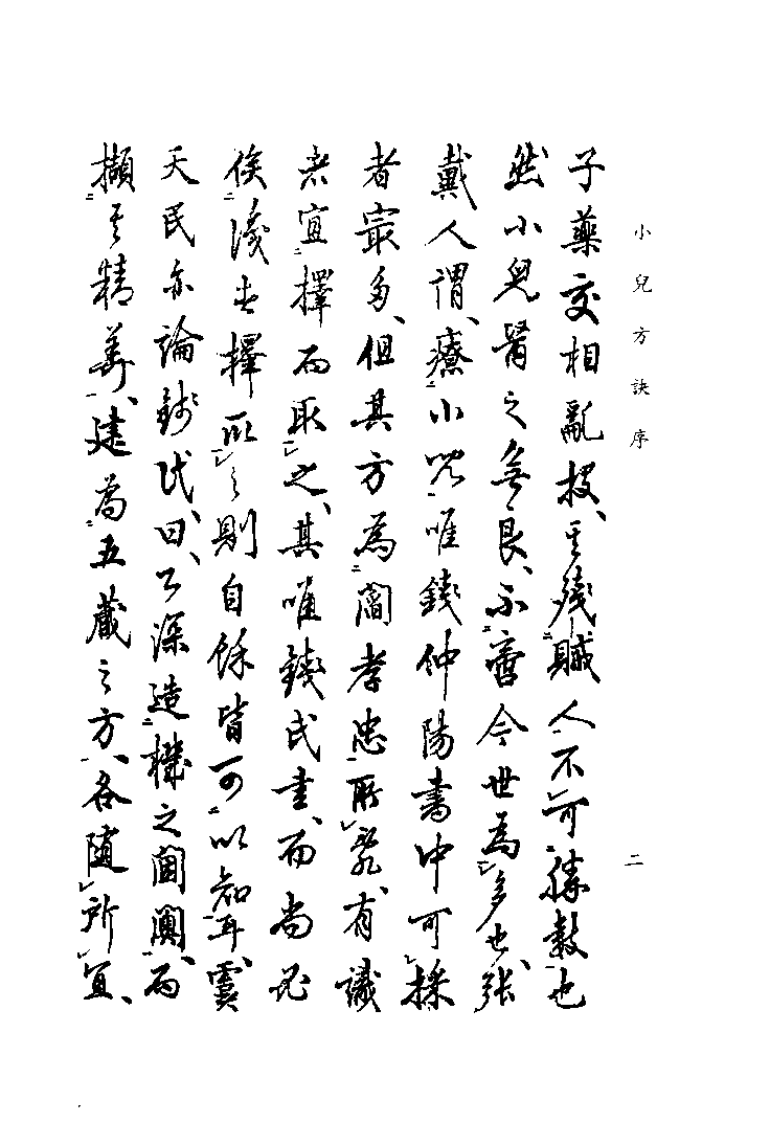 小兒方訣序
二
子藥交相亂投、其殘賊人不可勝數也
然小兒醫之無良、不啻今世為多也、張
戴人謂、療小兒、唯錢仲陽書中可採
者最多、但其方為閻孝忠所亂、有識
者宜擇而取之、其唯錢氏書、而尚
俟後擇取之則自餘皆可以知耳、虞
天民亦論錢氏、曰、乙深造機之閫奧、而
擷其精華、建為五藏之方、各隨所宜、